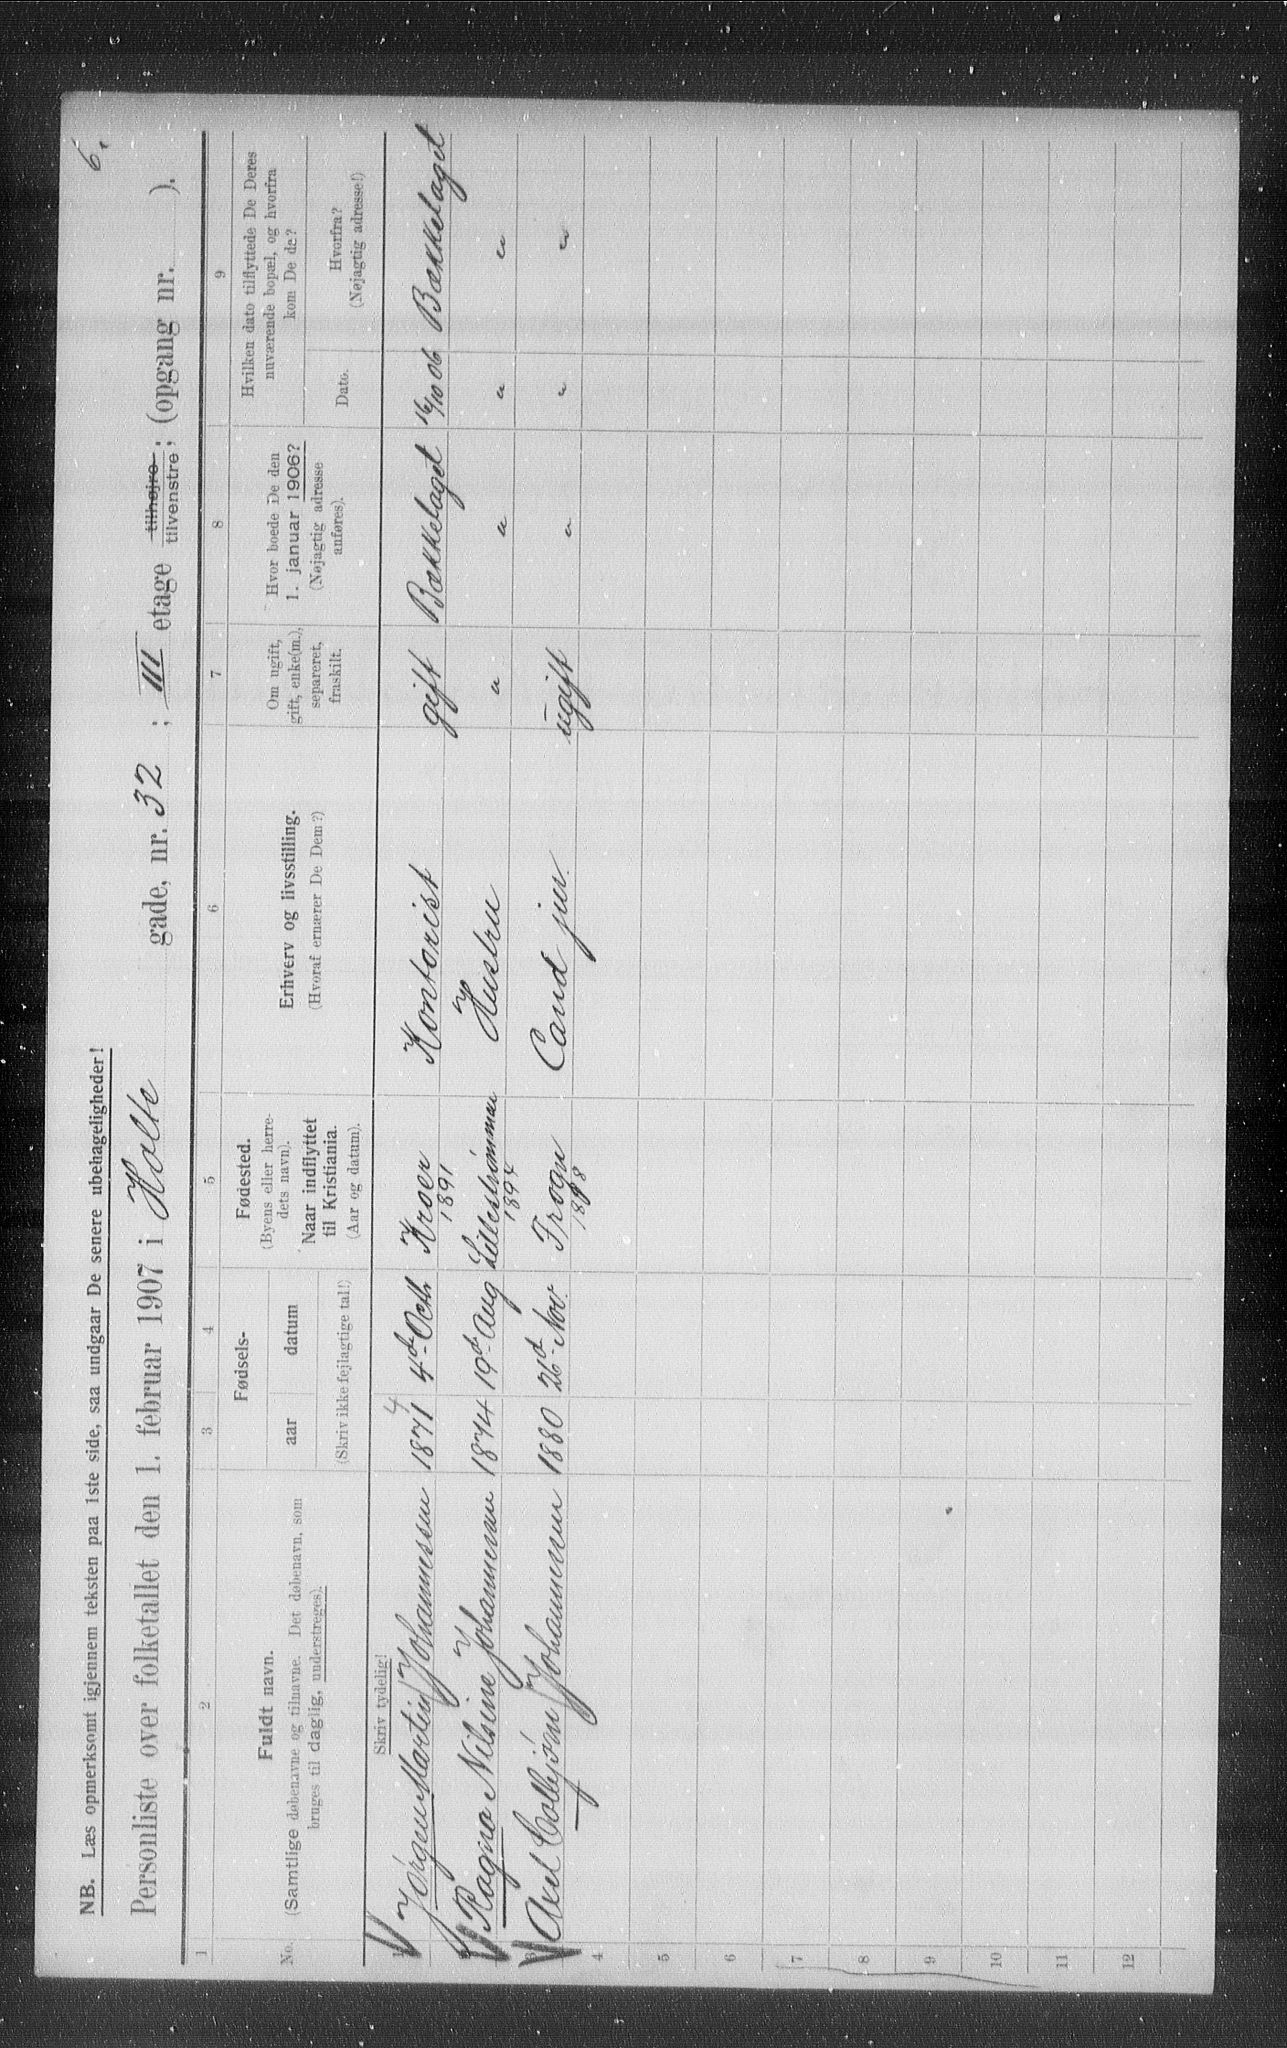 6.
NB. Læs opmerksomt igjennem teksten paa 1ste side, saa undgaar De senere ubehageligheder!
Personliste over folketallet den 1. februar 1907 i Holte gade, nr. 32 ; III etage tilhøjre tilvenstre ; (opgang nr. ).
1 2 3 4 5 6 7 8 9
No. Fuldt navn.
(Samtlige døbenavne og tilnavne. Det døbenavn, som
bruges til daglig, understreges).
Fødsels-
aar datum
(Skriv ikke fejlagtige tal!)
Fødested.
(Byens eller herre-
dets navn).
Naar indflyttet
til Kristiania.
(Aar og datum).
Erhverv og livsstilling.
(Hvoraf ernærer De Dem?)
Om ugift,
gift, enke(m.),
separeret,
fraskilt.
Hvor boede De den
1. januar 1906?
(Nøjagtig adresse
anføres).
Hvilken dato tilflyttede De Deres
nuværende bopæl, og hvorfra
kom De de?
Dato.
Hvorfra?
(Nøjagtig adresse!)
Skriv tydelig!
1 Jörgen Martin Johannesen 1871 4 4d Octh. Kroer 1891 Kontorist gift Bækkelaget 16/10 06 Bækkelaget
Ragna Nilsine Johannesen 1874 19d Aug Lillestrømmen 1894 Hustru " " " "
3 Axel Colbjörn Johannesen 1880 26d Nov. Frogn Cand jur. ugift " " "
4
5
6
7
8
9
10
11
12